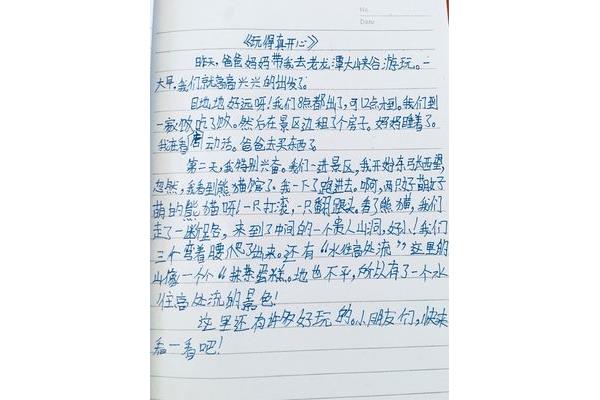 No.
Date
《玩得真开心》
昨天，爸爸妈妈带我去老龙潭大山峡谷游玩。一
大早，我们就高高兴兴的出发了。
目地地好远呀！我们8点都出了，可12点才到。我们到
一家饭吃了饭。然后在景区边租了个房子。妈妈睡着了。
我在看周动活。爸爸去买东西了。
第二天，我特别兴奋。我们一进景区，我开始东张西望，
忽然，我看到熊猫馆了。我一下了跑进去。啊，两只好萌好
萌的熊猫呀！一只打滚，一只翻跟头。看了熊猫，我们
走了一断路，来到了中间的一个贵人山洞，好小！我们
三个弯着腰爬了出来。还有“水往高处流”这里的
山像一个个“抹茶蛋糕。地也不平，所以有了一个水
往高处流的景色！
这里还有许多好玩的。小朋友们，快来
看一看吧！